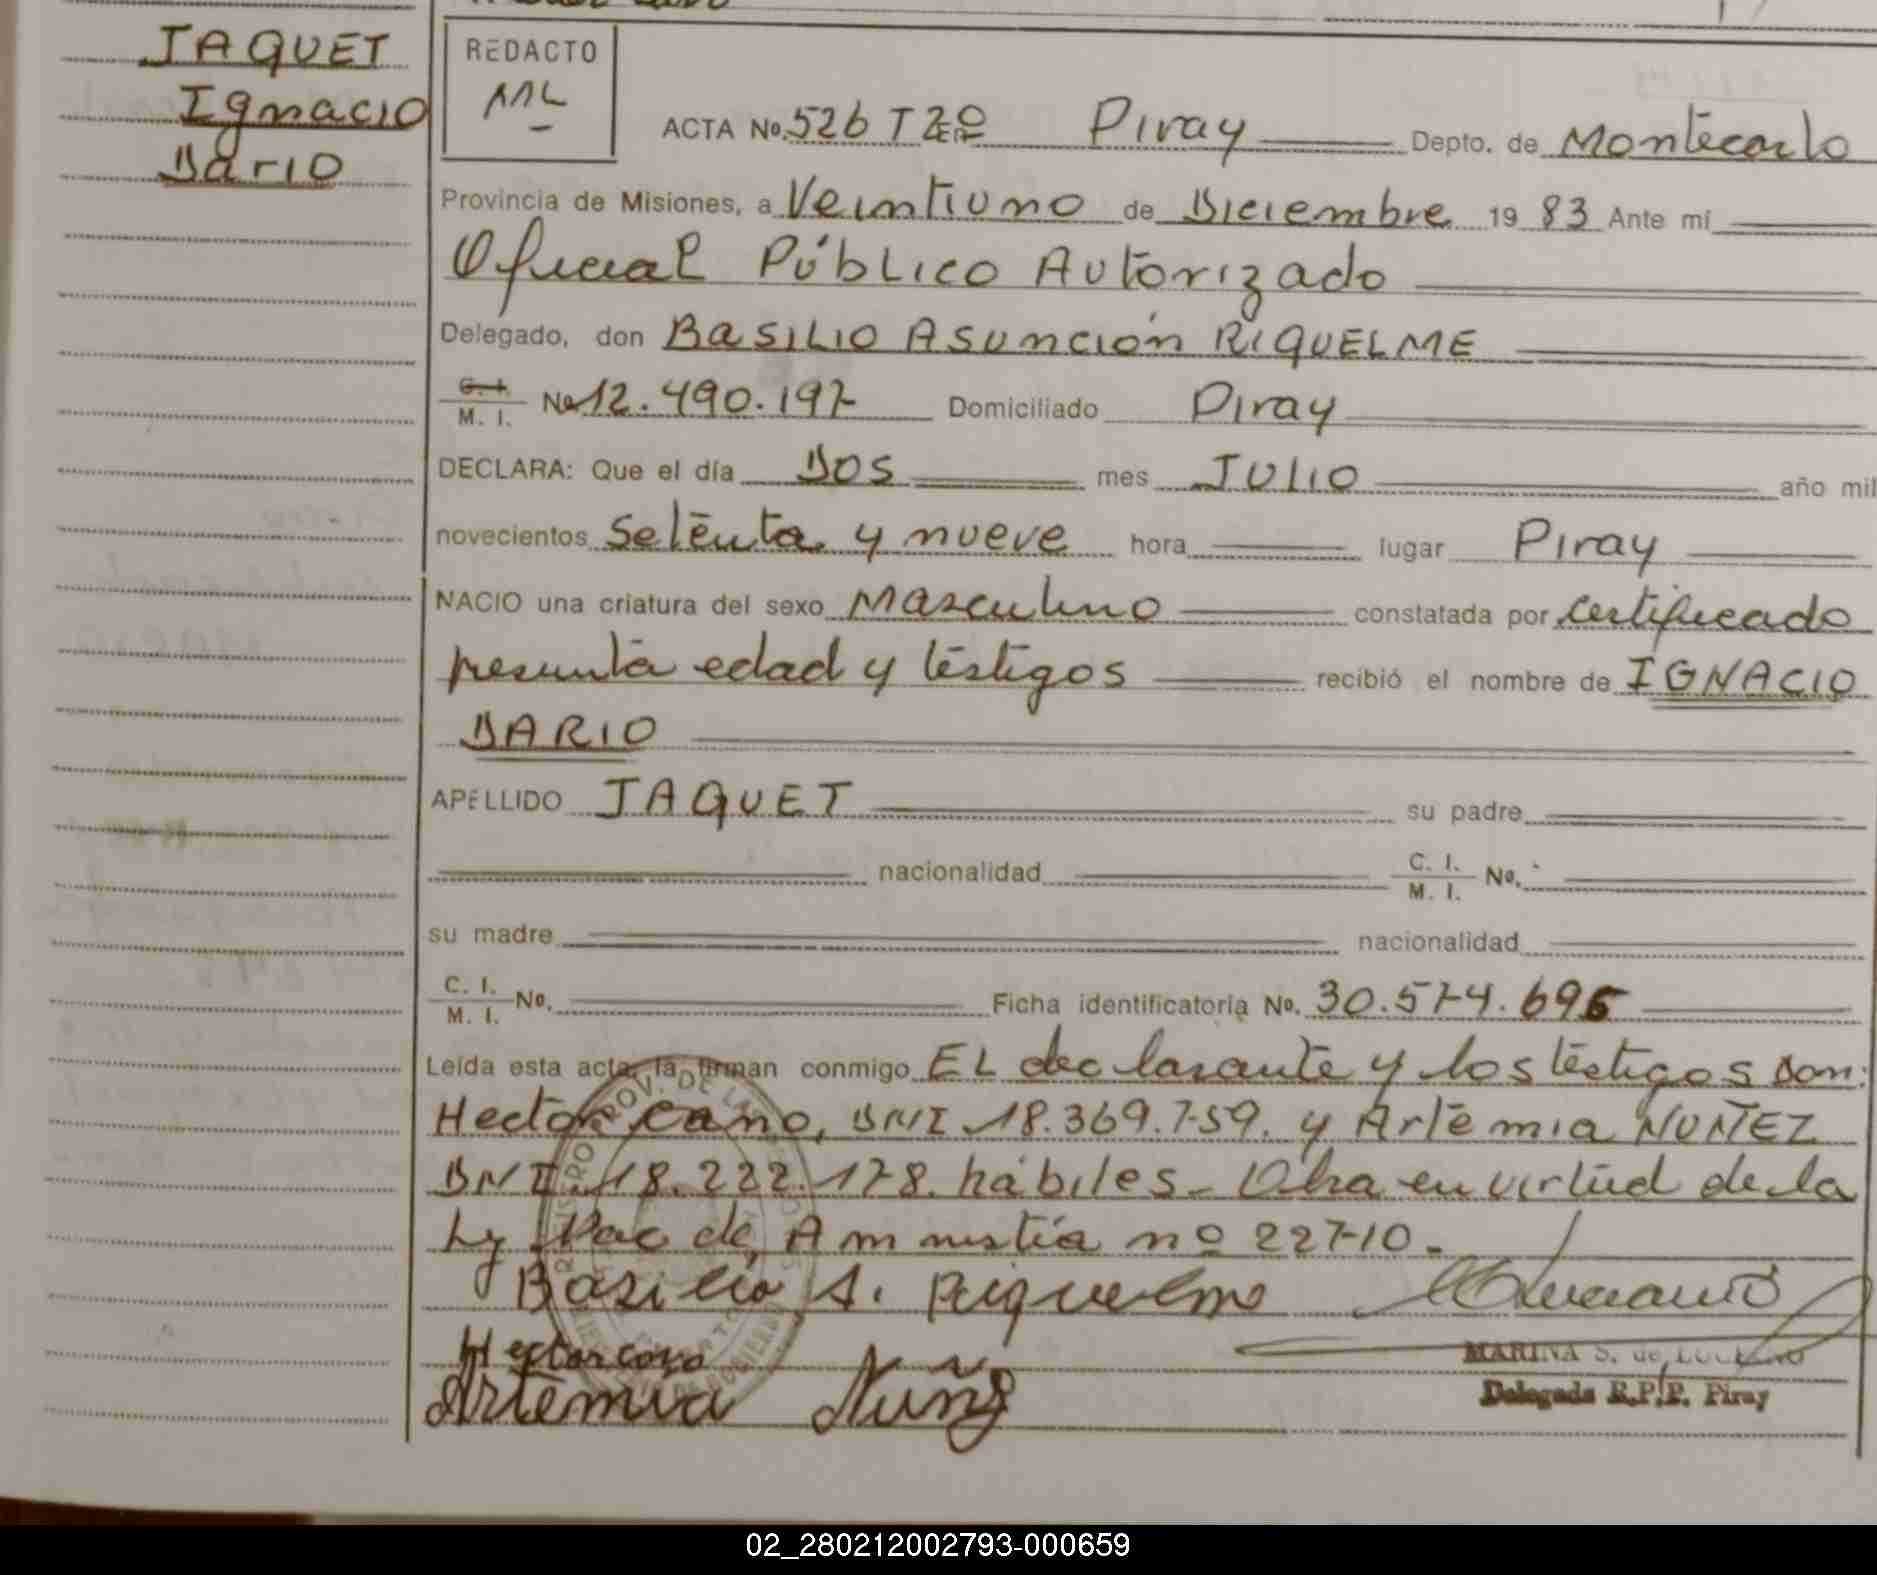 JAQUET
Ignacio
Dario
REDACTO
ACTA No. 526 T2º Piray Depto. de Montecarlo
Provincia de Misiones, a Veintiuno de Diciembre 19 83 Ante mí
Oficial Público Autorizado
Delegado, don BASILIO ASUNCIÓN RIQUELME
C. I.
M. I. No 12.490.197 Domiciliado Piray
DECLARA: Que el día DOS mes JULIO año mil
novecientos Setenta y nueve hora lugar Piray
NACIO una criatura del sexo Masculino constatada por certificado
presunta edad y testigos recibió el nombre de IGNACIO
DARIO
APELLIDO JAQUET su padre
nacionalidad C. I.
M. I. No.
su madre nacionalidad
C. I.
M. I. No. Ficha identificatoria No. 30.574.696
Leída esta acta, la firman conmigo EL declarante y los testigos Don:
Hector Cano, DNI 18.369.759. y Artemia NUÑEZ
DNI. 18.222.178. hábiles. Obra en virtud de la
Ley Nac de Amnistía nº 22710.
Basilio A. Riquelme
Hector cano
MARINA S. de LUCIANO
Artemia Nuñez
Delegada R.P.P. Piray
02_280212002793-000659